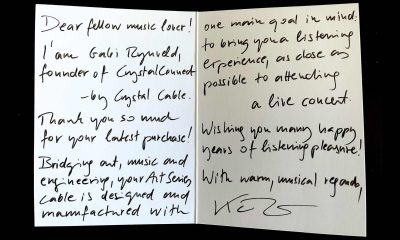 Dear fellow music lover!
I'am Gabi Rijnveld,
founder of CrystalConnect
- by Crystal Cable.
Thank you so much
for your latest purchase!
Bridging art, music and
engineering, your Art Series
cable is designed and
manufactured with
one main goal in mind:
to bring you a listening
experience, as close as
possible to attending
a live concert.
Wishing you many happy
years of listening pleasure!
With warm, musical regards,